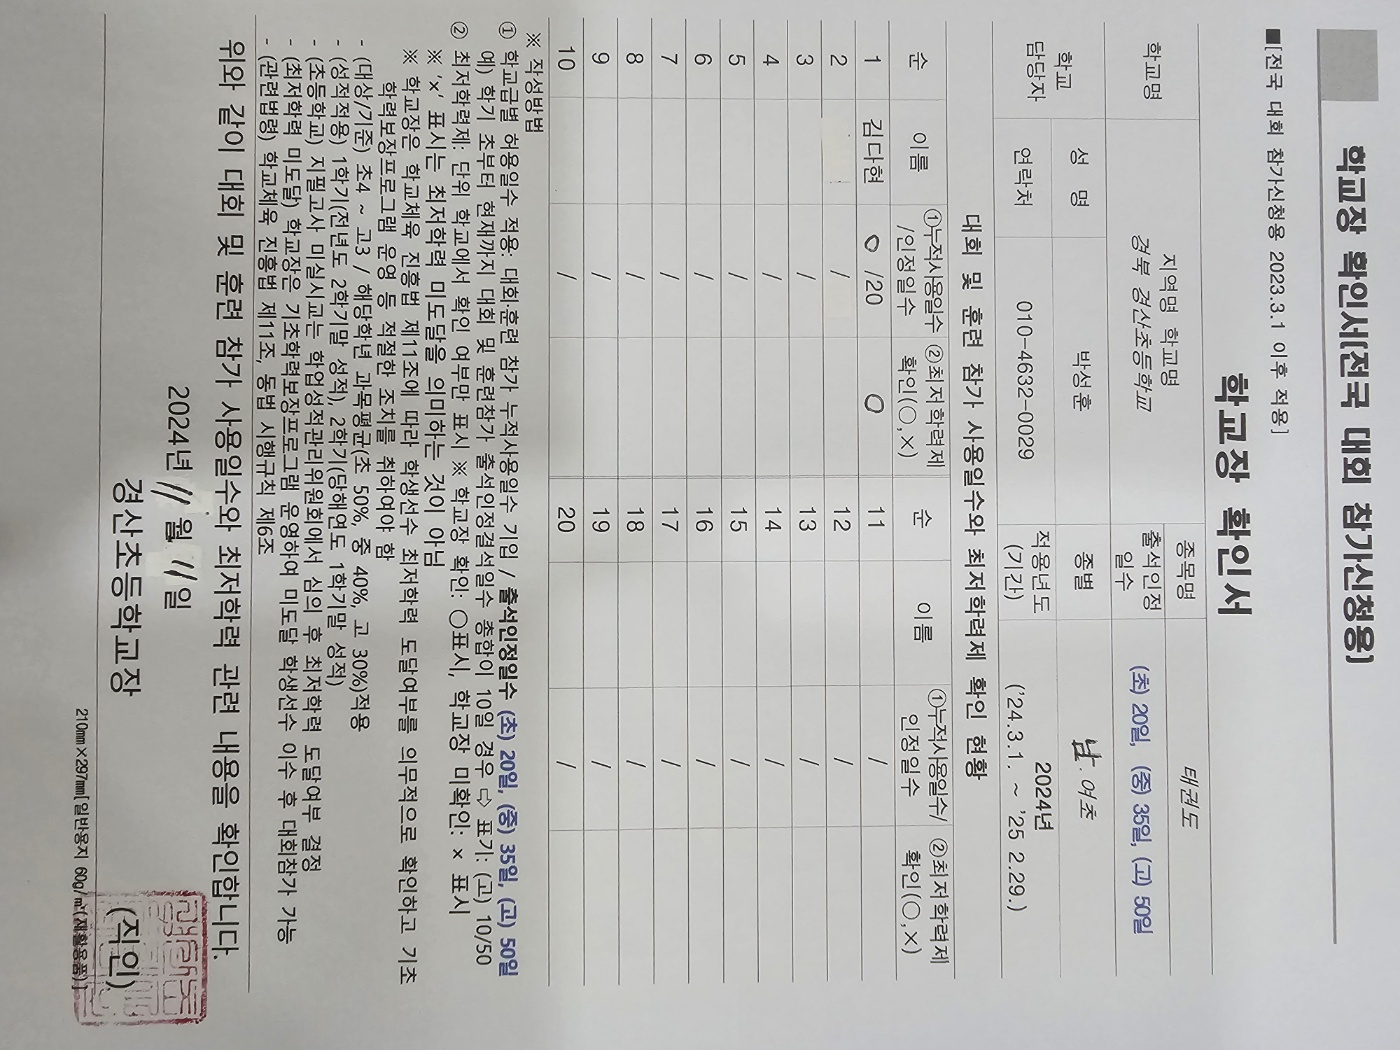 학교장 확인서[전국 대회 참가신청용]
■[전국 대회 참가신청용 2023.3.1 이후 적용]
학교장 확인서
학교명
지역명 학교명
경북 경산초등학교
종목명
태권도
출석인정
일수
(초) 20일, (중) 35일, (고) 50일
학교
담당자
성 명
박성훈
종별
남.여초
연락처
010-4632-0029
적용년도
(기간)
2024년
('24.3.1. ~ '25 2.29.)
대회 및 훈련 참가 사용일수와 최저학력제 확인 현황
순 이름 ①누적사용일수/인정일수 ②최저학력제 확인(○,×) 순 이름 ①누적사용일수/인정일수 ②최저학력제 확인(○,×)
1 김다현 0 /20 O 11 /
2 / 12 /
3 / 13 /
4 / 14 /
5 / 15 /
6 / 16 /
7 / 17 /
8 / 18 /
9 / 19 /
10 / 20 /
※ 작성방법
① 학교급별 허용일수 적용: 대회·훈련 참가 누적사용일수 기입 / 출석인정일수 (초) 20일, (중) 35일, (고) 50일
예) 학기 초부터 현재까지 대회 및 훈련참가 출석인정결석일수 총합이 10일 경우 ⇨ 표기: (고) 10/50
② 최저학력제: 단위 학교에서 확인 여부만 표시 ※ 학교장 확인: ○표시, 학교장 미확인: × 표시
※ '×' 표시는 최저학력 미도달을 의미하는 것이 아님
※ 학교장은 학교체육 진흥법 제11조에 따라 학생선수 최저학력 도달여부를 의무적으로 확인하고 기초
학력보장프로그램 운영 등 적절한 조치를 취하여야 함
- (대상/기준) 초4 ~ 고3 / 해당학년 과목평균(초 50%, 중 40%, 고 30%)적용
- (성적적용) 1학기(전년도 2학기말 성적), 2학기(당해연도 1학기말 성적)
- (초등학교) 지필고사 미실시교는 학업성적관리위원회에서 심의 후 최저학력 도달여부 결정
- (최저학력 미도달) 학교장은 기초학력보장프로그램 운영하여 미도달 학생선수 이수 후 대회참가 가능
- (관련법령) 학교체육 진흥법 제11조, 동법 시행규칙 제6조
위와 같이 대회 및 훈련 참가 사용일수와 최저학력 관련 내용을 확인합니다.
2024년 11 월 11 일
경산초등학교장 (직인)
210㎜×297㎜[일반용지 60g/㎡(재활용품)]